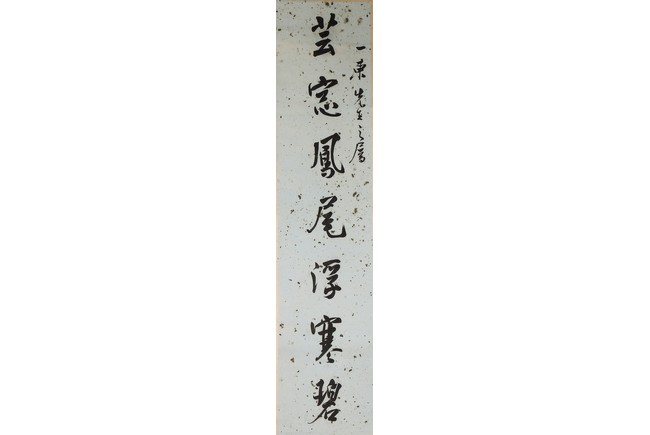 一東先生之屬
芸窓鳳尾浮寒碧